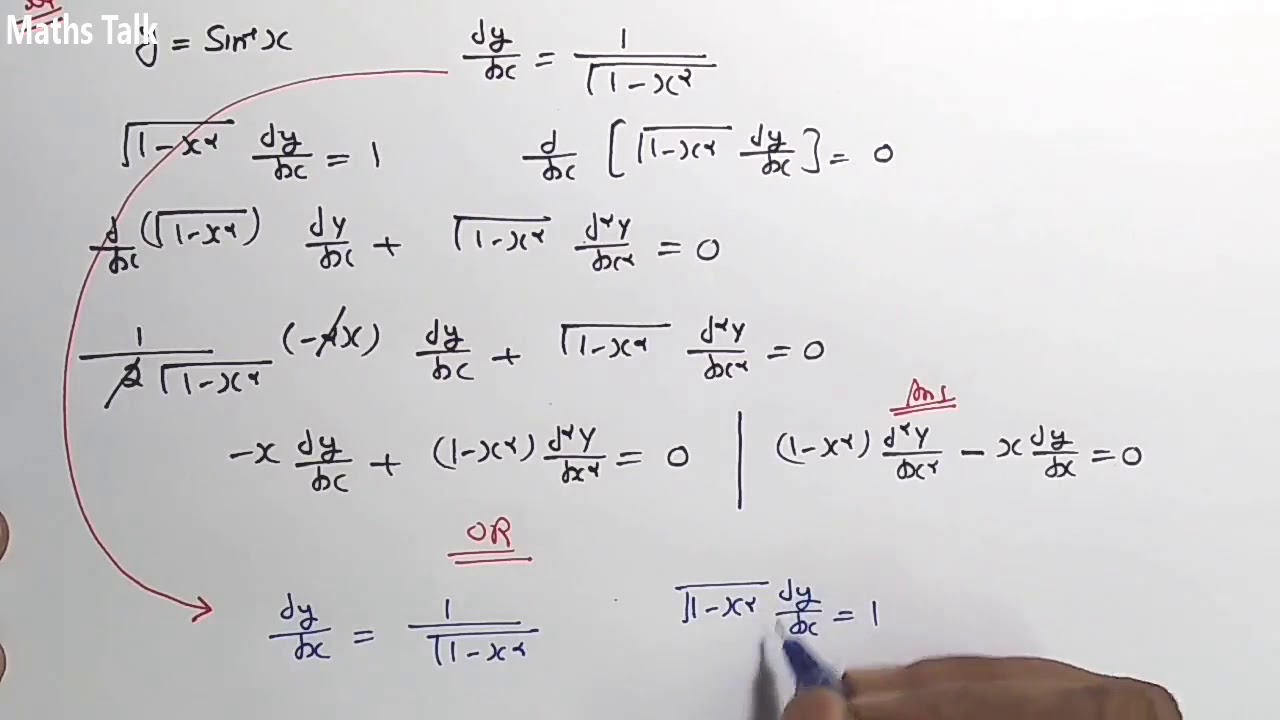 Maths Talk
y = Sin⁻¹x    dy/dx = 1/√(1-x²)
√(1-x²) dy/dx = 1    d/dx [√(1-x²) dy/dx] = 0
d/dx (√(1-x²)) dy/dx + √(1-x²) d²y/dx² = 0
1/(2√(1-x²)) (-2x) dy/dx + √(1-x²) d²y/dx² = 0
Ans
-x dy/dx + (1-x²) d²y/dx² = 0 | (1-x²) d²y/dx² - x dy/dx = 0
OR
dy/dx = 1/√(1-x²)    √(1-x²) dy/dx = 1